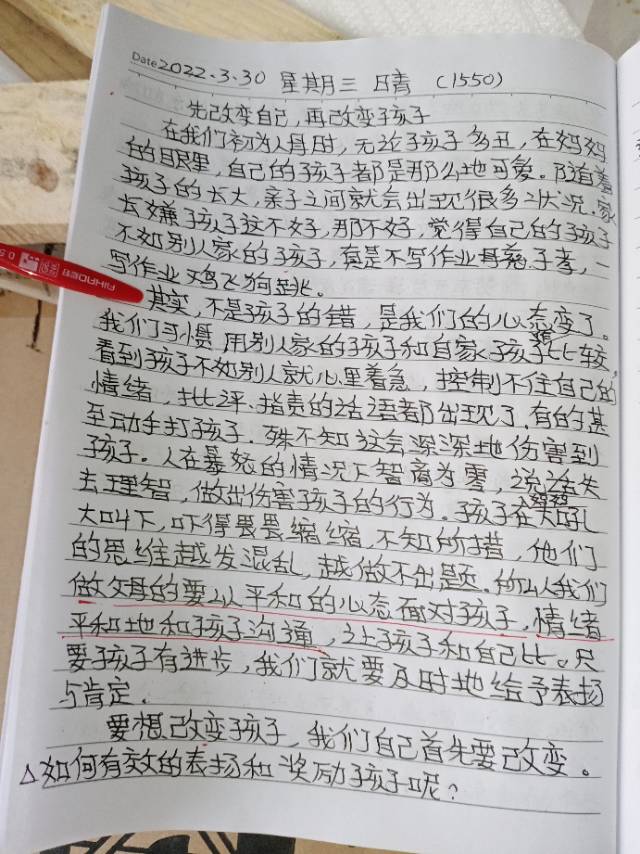 Date 2022.3.30 星期三 日晴 (1550)
先改变自己，再改变孩子
在我们初为人母时，无论孩子多丑，在妈妈
的眼里，自己的孩子都是那么地可爱。随着
孩子的长大，亲子之间就会出现很多状况。家
长嫌孩子这不好，那不好，觉得自己的孩子
不如别人家的孩子，真是不写作业母慈子孝，一
写作业鸡飞狗跳。
其实，不是孩子的错，是我们的心态变了。
我们习惯用别人家的孩子和自家孩子比较，
看到孩子不如别人就心里着急，控制不住自己的
情绪，批评、指责的话语都出现了，有的甚
至动手打孩子。殊不知这会深深地伤害到
孩子。人在暴怒的情况下智商为零，说话失
去理智，做出伤害孩子的行为。孩子在妈妈大吼
大叫下，吓得畏畏缩缩，不知所措，他们
的思维越发混乱，越做不出题。所以我们
做父母的要以平和的心态面对孩子，情绪
平和地和孩子沟通，让孩子和自己比。只
要孩子有进步，我们就要及时地给予表扬
与肯定。
要想改变孩子，我们自己首先要改变。
△如何有效的表扬和奖励孩子呢？
AIHAO